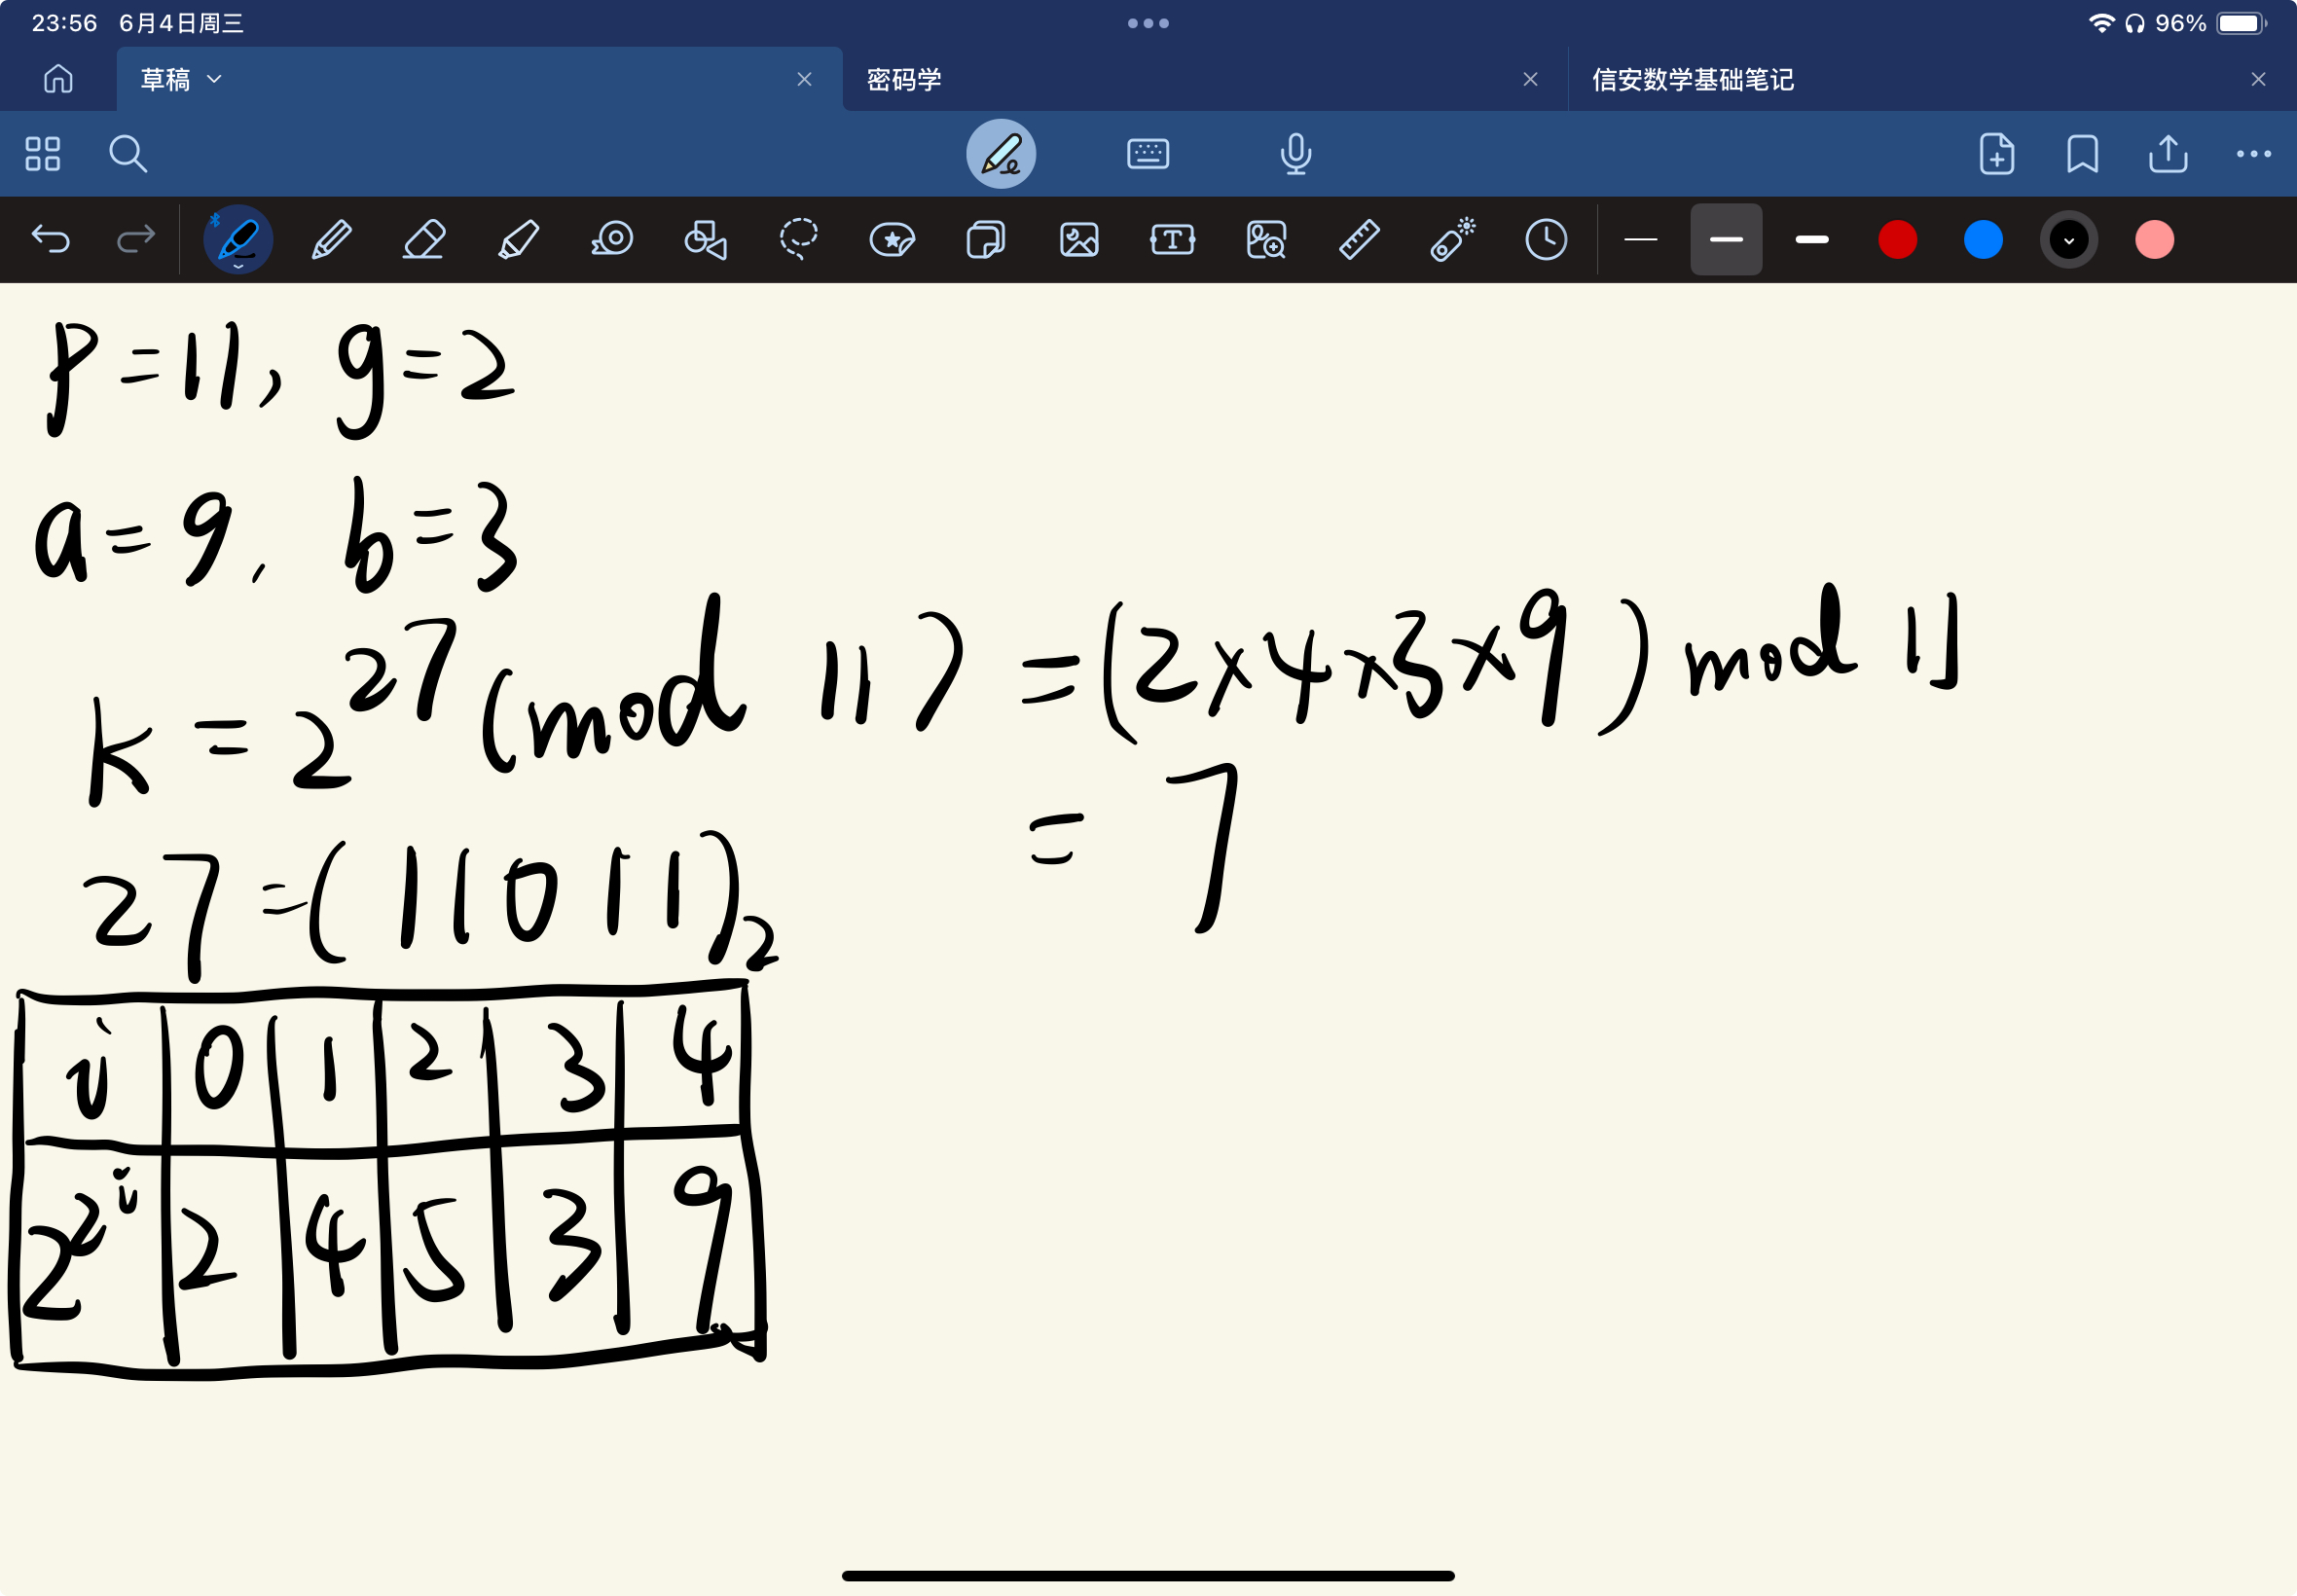 23:56 6月4日周三 96%
草稿 密码学 信安数学基础笔记
p=11, g=2
a=9, b=3
K=2^27 (mod 11) = (2×4×3×9) mod 11
= 7
27=(11011)₂
i 0 1 2 3 4
2^2^i 2 4 5 3 9